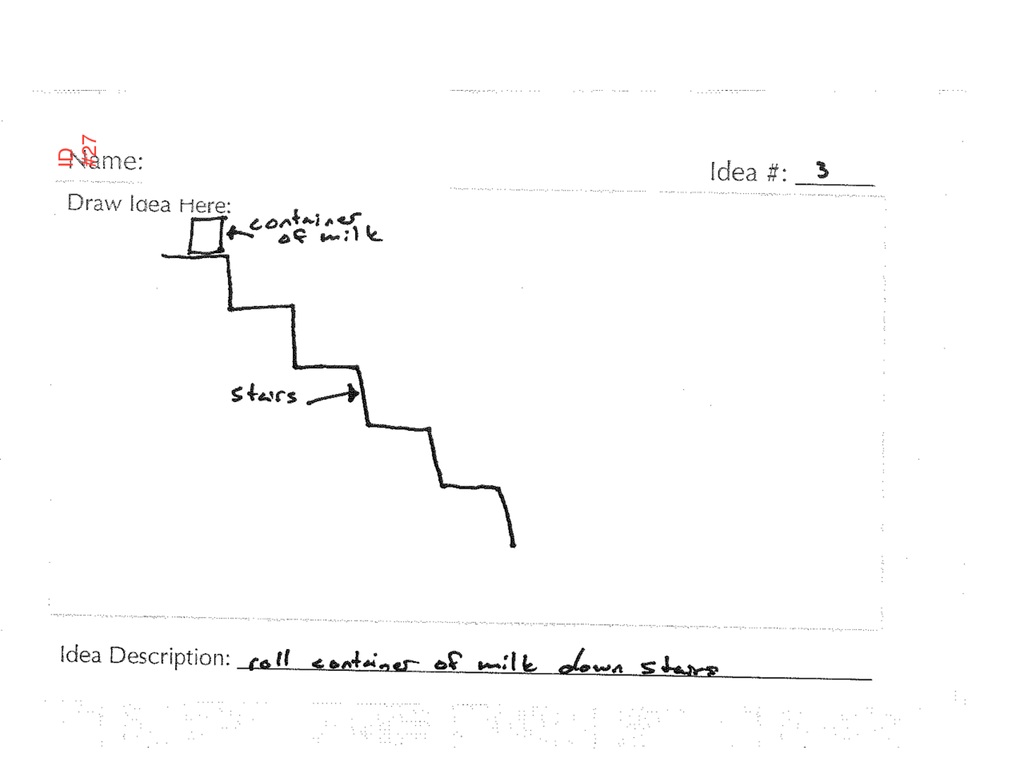 ID #27
Name:
Idea #: 3
Draw Idea Here:
container
of milk
stairs
Idea Description: roll container of milk down stairs